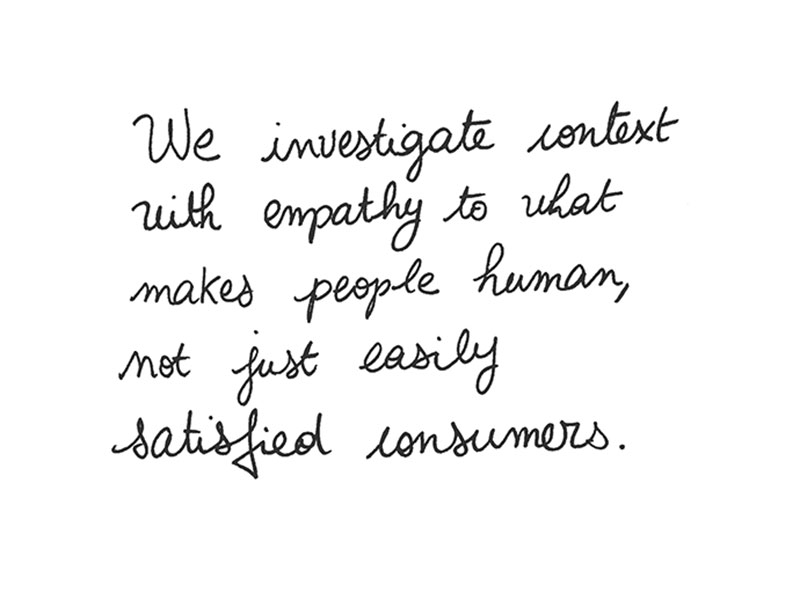 We investigate context
with empathy to what
makes people human,
not just easily
satisfied consumers.